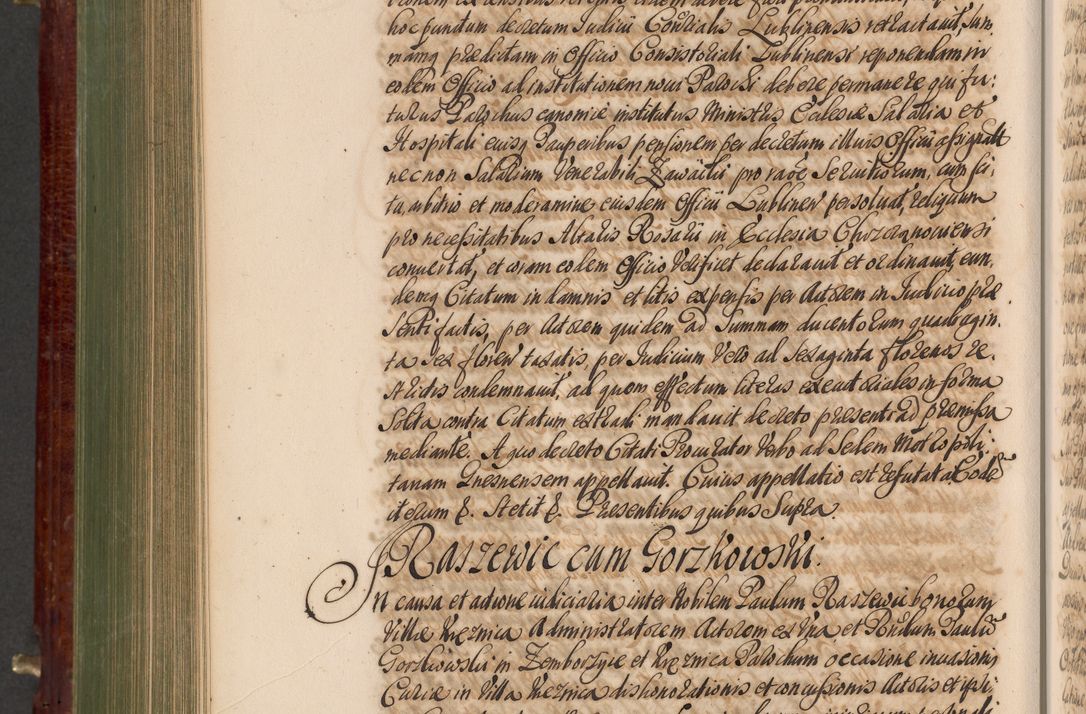 hoc punctum decretum Iudicii Conrialis Lublinensis retractavit, sum-
mamq prædictam in Officio Consistoriali Lublinensi reponendam in
eodem Officio ad institutionem novi Parochi debere permanere qui fu-
turus Parochus canonicè institutus Ministris Ecclesiæ Salaria et
Hospitali eiusq Pauperibus pensionem per decretum illius Officii assignatt
nec non Salarium Venerabili Zawacki pro raõe Servitiorum, cum sci-
tu, arbitrio et moderamine eiusdem Officii Lublinen persoluat, reliquum
pro necessitatibus Altaris Rosarii in Ecclesia Chrzcąnoviensi
convertat, et coram eodem Officio Verificet declaravit et ordinavit, eun-
demq Citatum in damnis et litis expensis per Actorem in Iudicio præ-
senti factis, per Actorem quidem ad Summam ducentorum quadragin-
ta sex floren taxatis, per Iudicium Vero ad sexaginta florenos re-
strictis condemnavit, ad quem effectum literas executoriales in forma
Solita contra Citatum extradi mandavit decreto præsenti ad præmissa
mediante. A quo decreto Citati Procurator Verbo ad Sedem Metropoli-
tanam Gnesnensem appellavit. Cuius appellatio est refutata Eod
iterum &. Stetit &. Præsentibus quibus Supra.
Raszewic cum Gorzkowski.
In causa et actione iudiciaria inter Nobilem Paulum Raszewic bonorum
Villæ Krężnica Administratorem Actorem ex Vna et Rndum Paulũ
Gorzkowski in Zemborzyce et Krężnica Parochum occasione invasionis
Curiæ in Villa Krężnica dishonorationis et concussionis Actoris et ipsi-